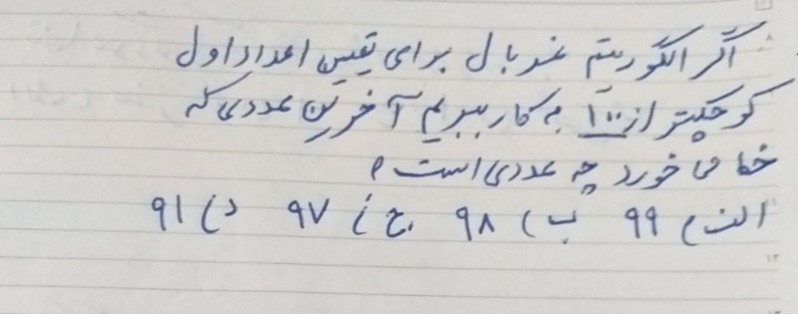 اگر الگوریتم غربال برای تعیین اعداد اول
کوچکتر از ۱۰۰ به کار ببریم آخرین عددی که
خط می خورد چه عددی است؟
الف) ۹۹ ب) ۹۸ ج) ۹۷ د) ۹۱